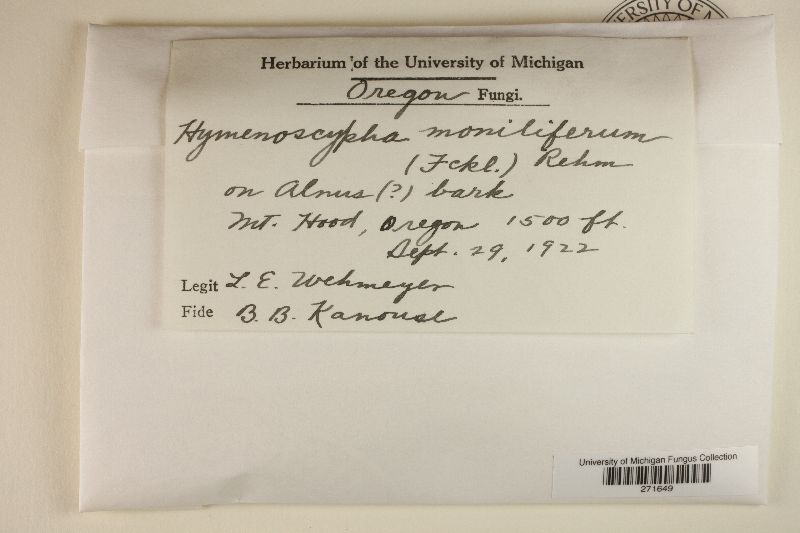 Herbarium of the University of Michigan
Oregon Fungi.
Hymenoscypha moniliferum
(Fckl.) Rehm
on Alnus (?) bark
Mt. Hood, Oregon 1500 ft.
Sept. 29, 1922
Legit L. E. Wehmeyer
Fide B. B. Kanouse
University of Michigan Fungus Collection
271649